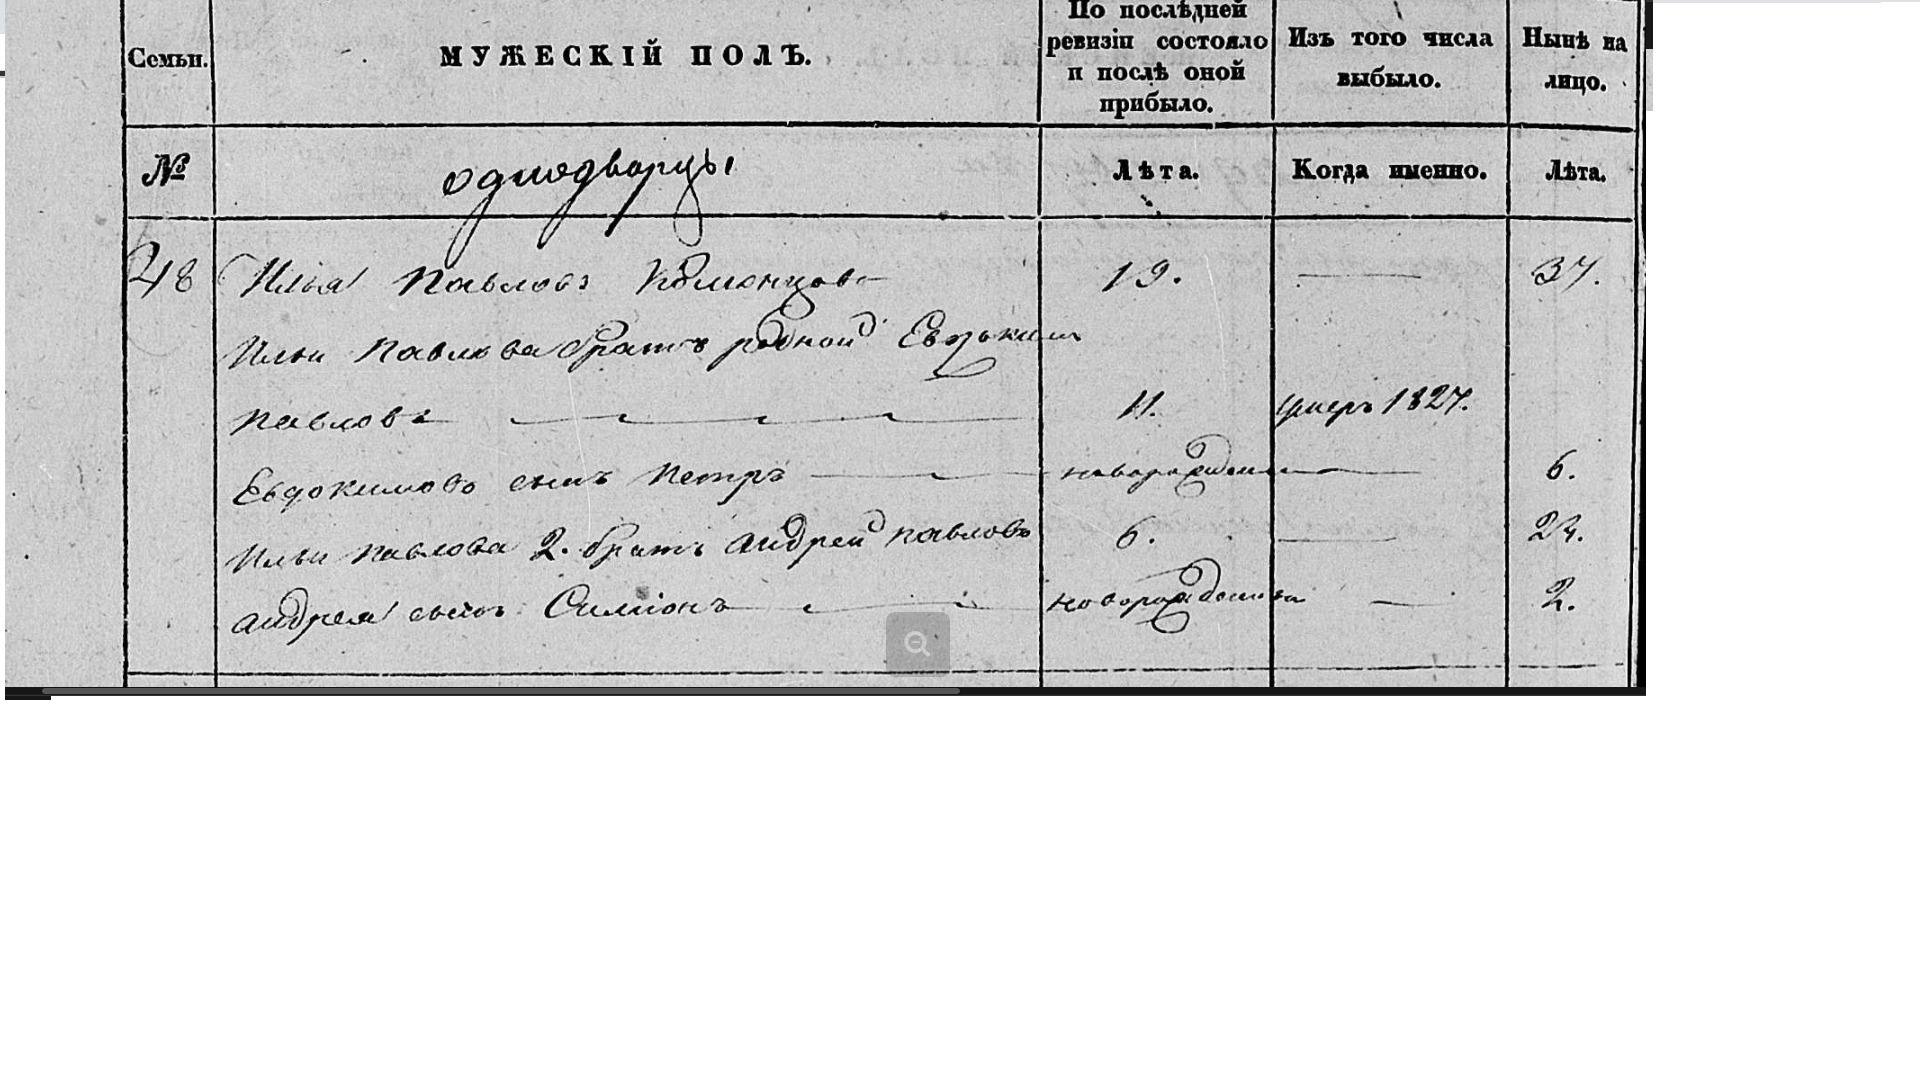 Семьи. МУЖЕСКІЙ ПОЛЪ. По послѣдней ревизіи состояло и послѣ оной прибыло. Изъ того числа выбыло. Нынѣ на лицо.
№ однодворцы Лѣта. Когда именно. Лѣта.
248 Илья Павловъ 19. — 37.
Ильи Павлова братъ родной Евдокимъ
Павловъ 11. умеръ 1827.
Евдокимовъ сынъ Петръ — новорожденъ — 6.
Ильи Павлова 2. братъ Андрей Павловъ 6. — 24.
Андрея сынъ Симіонъ — новорожденъ — 2.